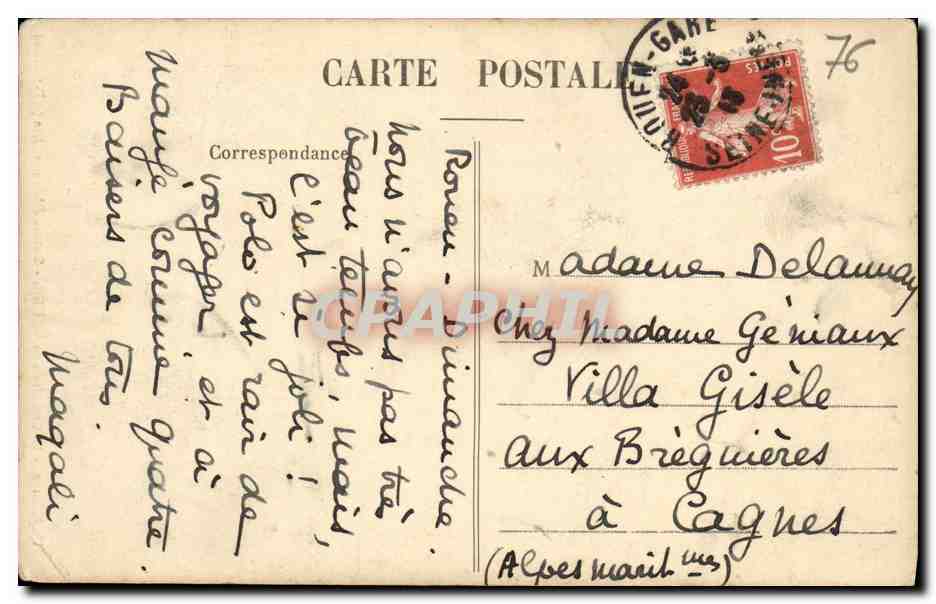 CARTE POSTALE
Correspondance
Rouen - Dimanche.
Nous n'avons pas très
beau temps, mais,
c'est si joli !
Polo est ravi de
voyager et à
mangé comme quatre.
Baisers de tous.
Magali
76
ROUEN-GARE
SEINE INF
10
Madame Delaunay
Chez Madame Géniaux
Villa Gisèle
aux Brèguières
à Cagnes
(Alpes marit mes)
CPAPHIL